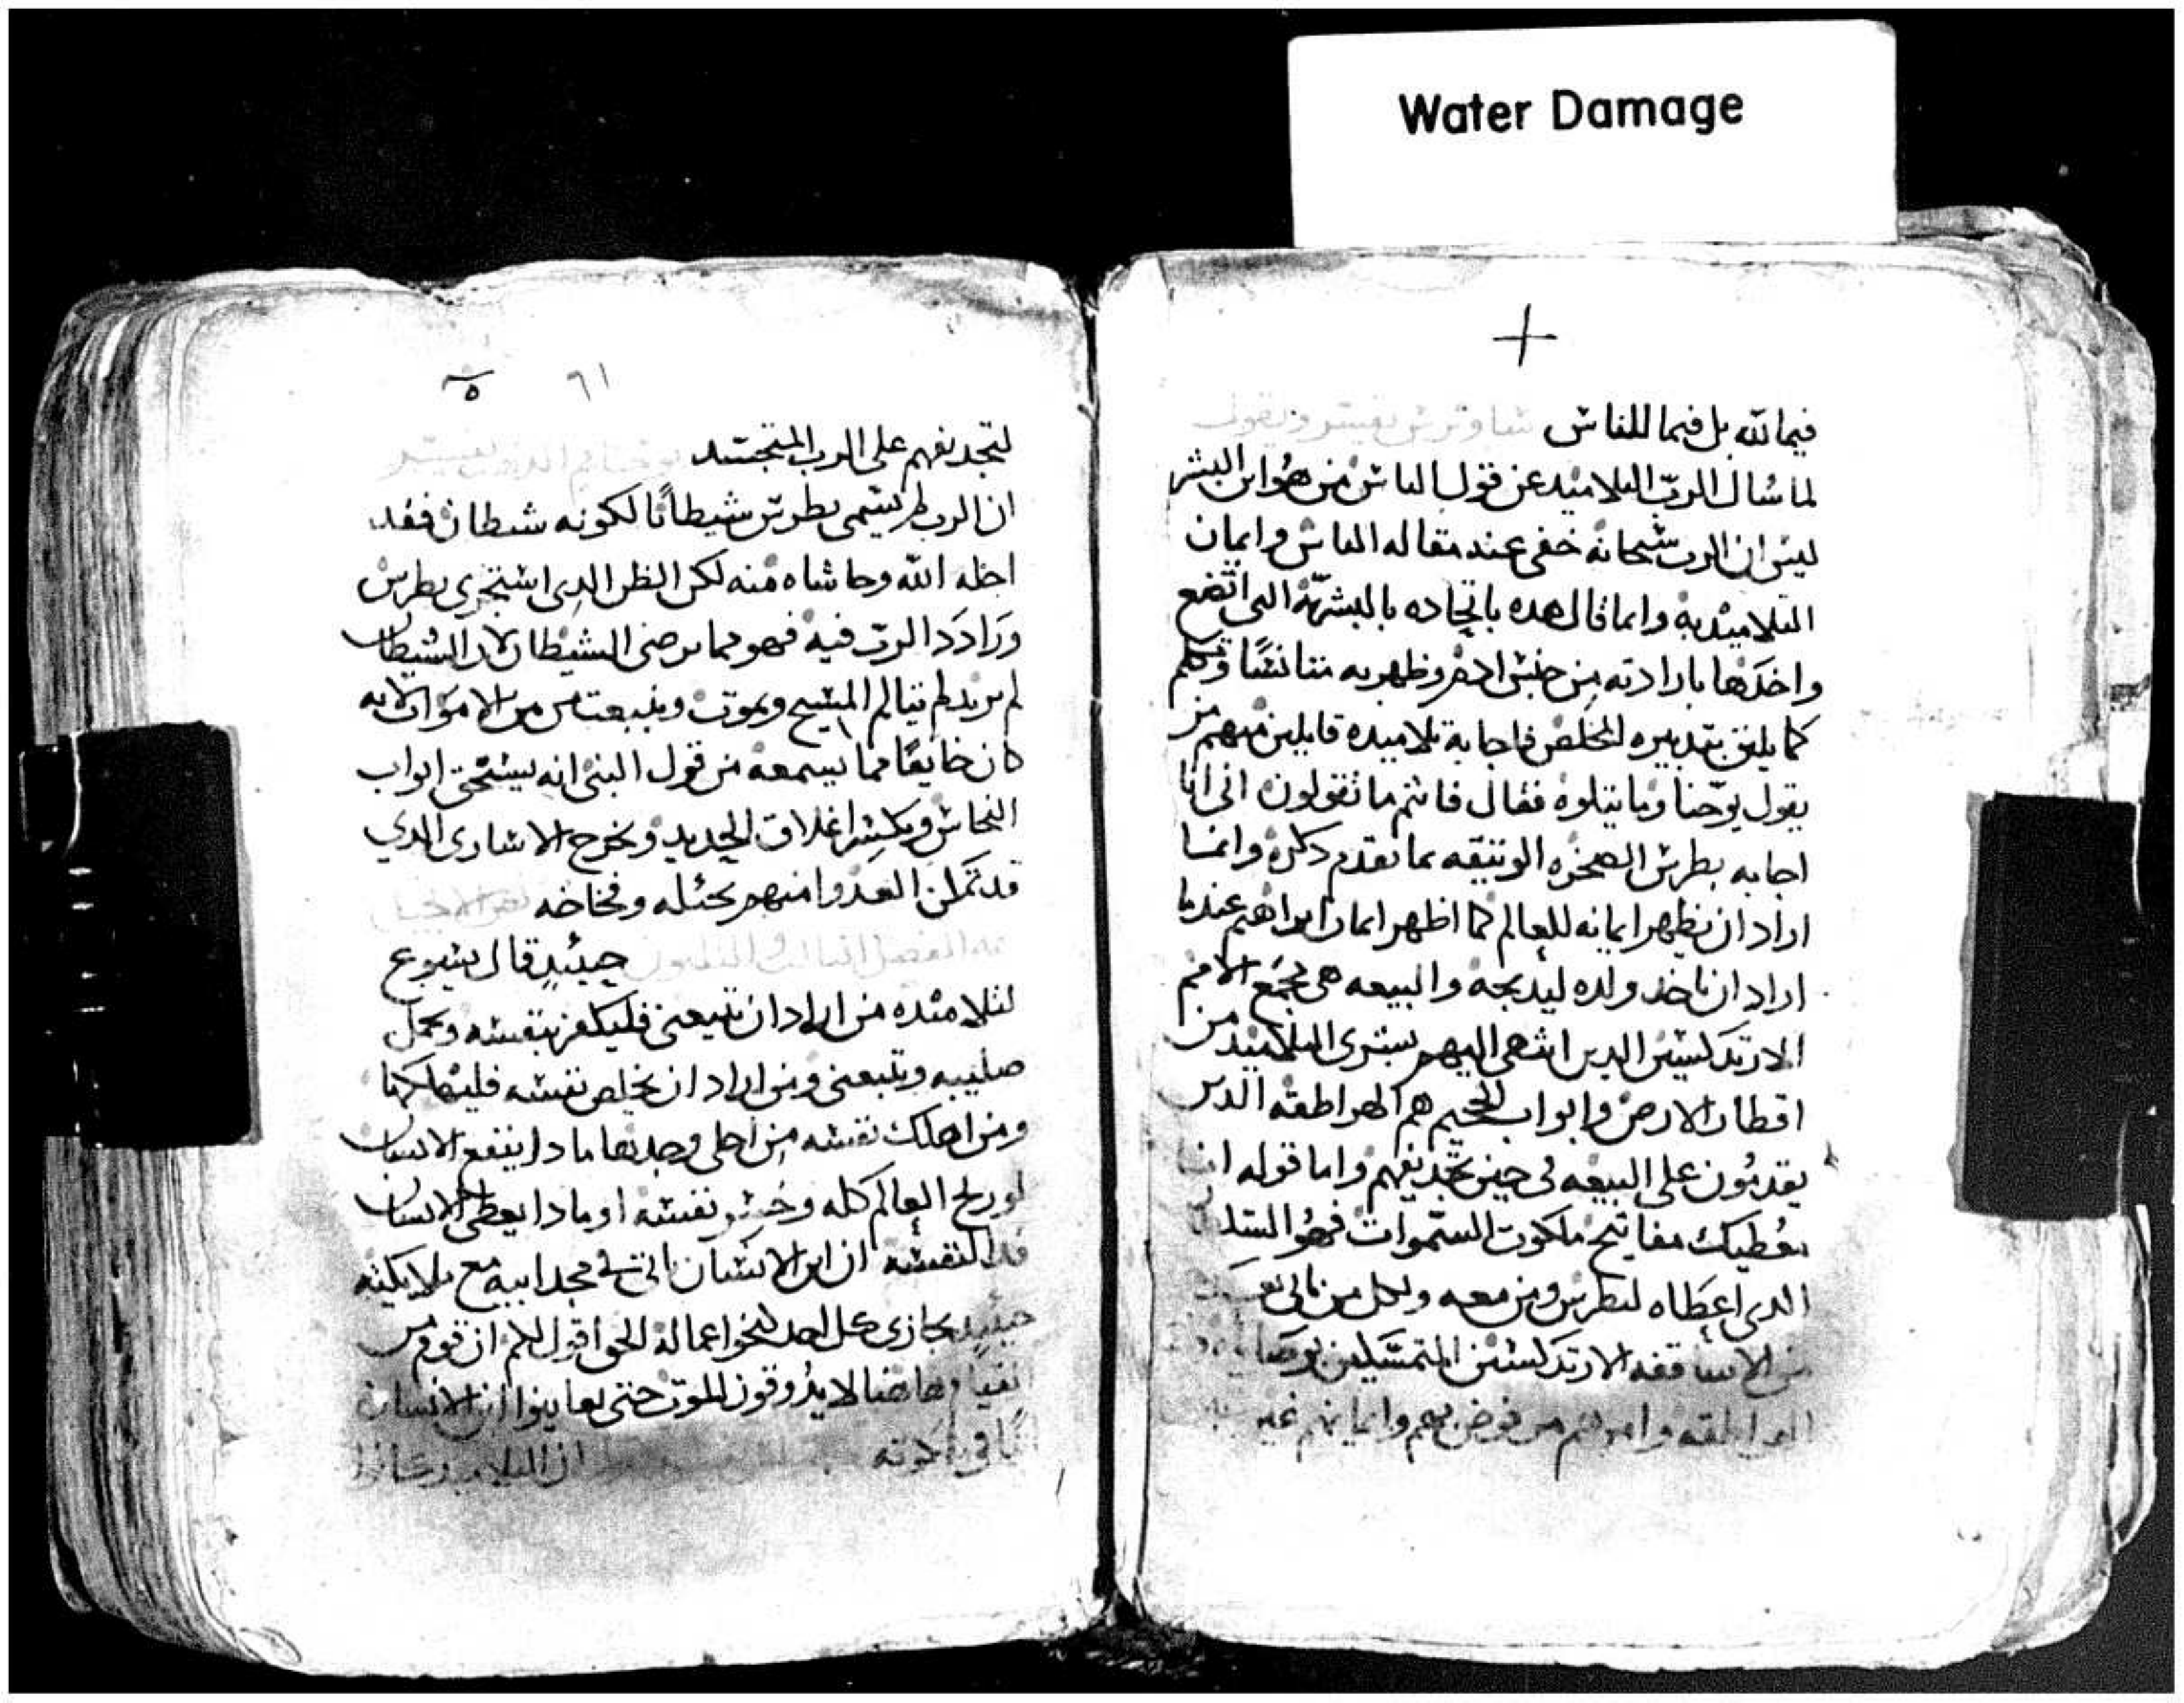 Water Damage
+
فيما لله بل فيما للناس ساويرس يفسر ويقول
لما سال الرب التلاميد عن قول الناس من هو ابن البشر
ليس ان الرب سبحانه خفى عنه مقاله الناس وايمان
التلاميد به وانما قال هده باتحاده بالبشريه التى اتضع
واخدها بارادته من جنس ادم وظهر به متانسا وتكلم
كما يليق بتدبيره المخلص فاجابه تلاميده قايلين منهم من
يقول يوحنا وما يتلوه فقال فانتم ما تقولون انى انا
اجابه بطرس الصخره الوتيقه بما تقدم دكره وانما
اراد ان يظهر ايمانه للعالم كما اظهر ايمان ابراهيم عندما
اراد ان ياخد ولده ليدبحه والبيعه هى مجمع الامم
الارتدكسيين الدين انتهى اليهم بشرى التلاميد من
اقطار الارض وابواب الجحيم هم الهراطقه الدين
يقدمون على البيعه فى حين تجديفهم واما قوله انا
نعطيك مفاتيح ملكوت السموات فهو السلطان
الدى اعطاه لبطرس ومن معه ولكل من ياتى
من الاساقفه الارتدكسيين المتمسكين
الهراطقه من فوض وايمانهم غير
٦١
لتجديفهم على الرب المتجسد يوحنا فم الدهب يفسر
ان الرب لم يسمى بطرس شيطانا لكونه شيطان فقد
اجله الله وحاشاه منه لكن الظن الدى استجرى بطرس
وراددا الرب فيه فهو مما يرضى الشيطان لان الشيطان
لم يريد لم يتالم المسيح ويموت وينبعت من من الاموات لانه
كان خايفا مما يسمعه من قول النبى انه يسحق ابواب
النحاس ويكسر اغلاق الحديد ويخرج الاسارى الدي
قد تملك العدو منهم بحيله وفخاخه نص الانجيل
الفصل التالت والتلتون حينيد قال يسوع
لتلاميده من اراد ان يتبعنى فليكفر بنفسه ويحمل
صليبه ويتبعنى ومن اراد ان يخلص نفسه فليهلكها
ومن اهلك نفسه من اجلى وجدها مادا ينفع الانسان
لو ربح العالم كله وخسر نفسه او مادا يعطى الانسان
فدا لنفسه ان ابن الانسان ياتى فى مجد ابيه مع ملايكته
حينيد يجازى كل احد كنحو اعماله الحق اقول لكم ان قوم من
القيام هاهنا لا يدوقون الموت حتى يعاينوا ابن الانسان
اتيا فى ملكوته ان التلاميد